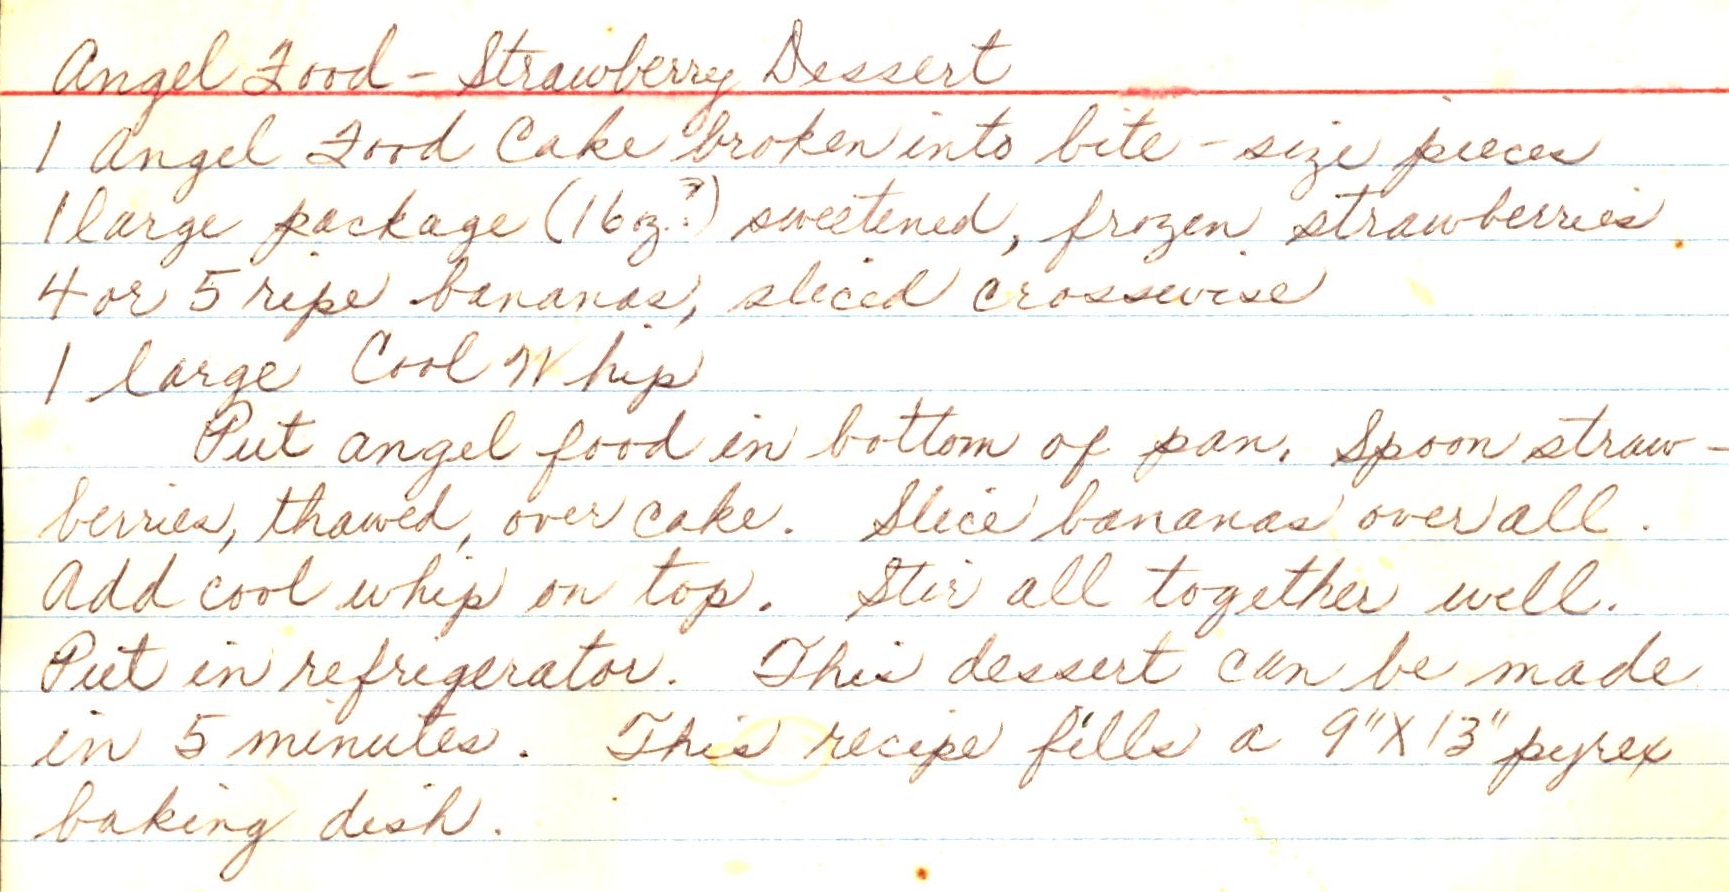 Angel Food - Strawberry Dessert
1 Angel Food Cake broken into bite-size pieces
1 large package (16 oz.?) sweetened, frozen strawberries
4 or 5 ripe bananas, sliced crosswise
1 large Cool Whip
Put angel food in bottom of pan. Spoon straw-
berries, thawed, over cake. Slice bananas over all.
Add cool whip on top. Stir all together well.
Put in refrigerator. This dessert can be made
in 5 minutes. This recipe fills a 9"X13" pyrex
baking dish.